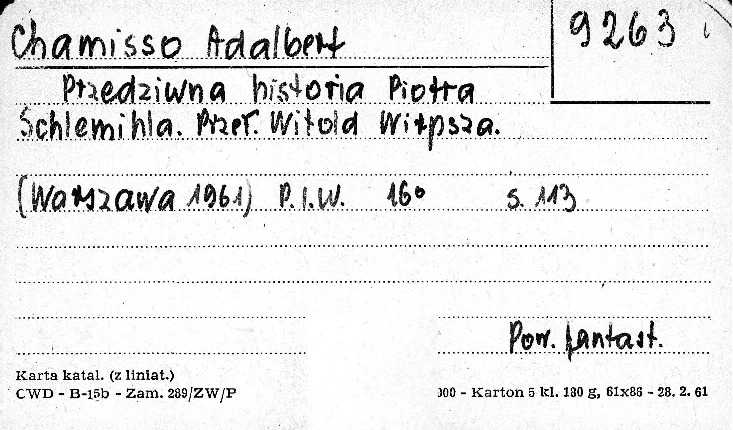 Chamisso Adalbert
9263
Przedziwna historia Piotra
Schlemihla. Przeł. Witold Wirpsza.
(Warszawa 1961) P.I.W. 16° s. 113
Pow. fantast.
Karta katal. (z liniat.)
CWD - B-15b - Zam. 289/ZW/P
000 - Karton 5 kl. 180 g, 61x86 - 28. 2. 61